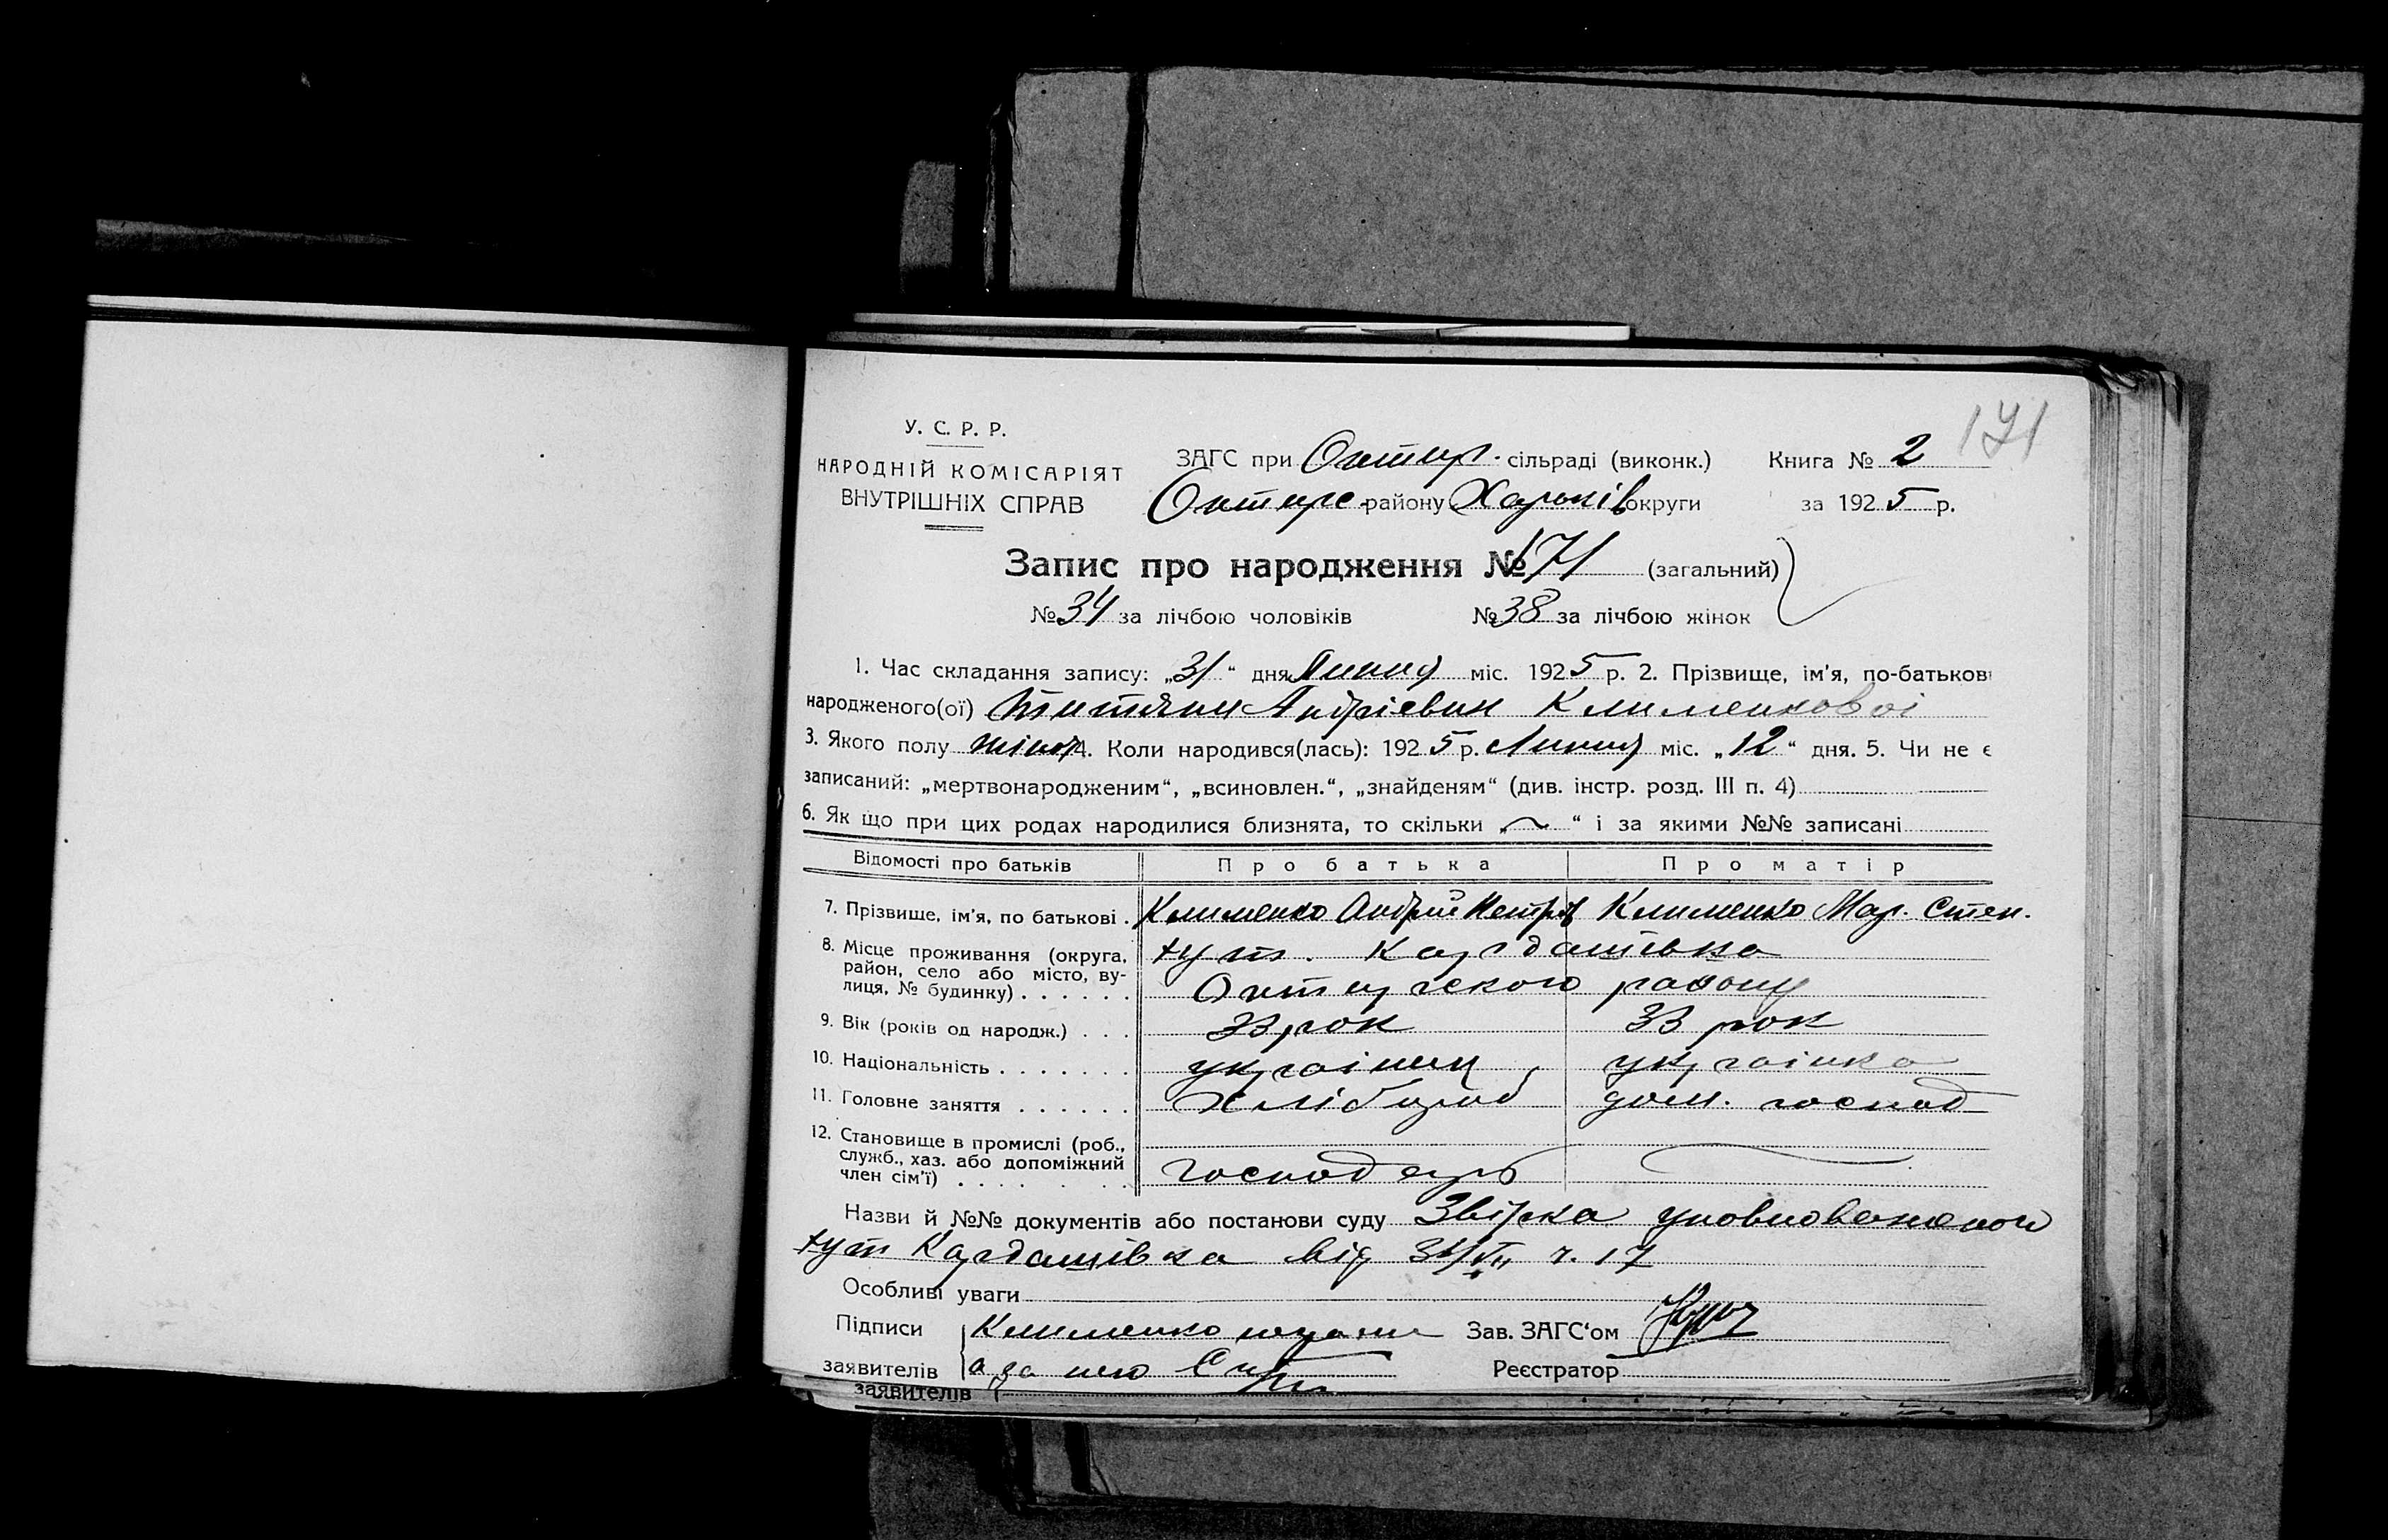 171
У. С. Р. Р.
НАРОДНІЙ КОМІСАРІЯТ
ВНУТРІШНІХ СПРАВ
ЗАГС при Охтир. сільраді (виконк.) Книга № 2
Охтирс. району Харьків округи за 1925 р.
Запис про народження № 171 (загальний)
№ 34 за лічбою чоловіків № 38 за лічбою жінок
1. Час складання запису: „31“ дня Липня міс. 1925 р. 2. Прізвище, ім’я, по-батькові
народженого(ої) Андріевни Клименковоі
3. Якого полу жіноч 4. Коли народився(лась): 1925 р. Липня міс. „12“ дня. 5. Чи не є
записаний: „мертвонародженим“, „всиновлен.“, „знайденям“ (див. інстр. розд. III п. 4)
6. Як що при цих родах народилися близнята, то скільки „ “ і за якими №№ записані
Відомості про батьків Про батька Про матір
7. Прізвище, ім’я, по батькові . Клименко Андрій Петров Клименко Мар. Степ.
8. Місце проживання (округа, хут. Кардашівка
район, село або місто, ву-
лиця, № будинку) . . . . . . Охтирського району
9. Вік (років од народж.) . . . 33 рок 33 рок
10. Національність . . . . . . . украінец украінка
11. Головне заняття . . . . . . хлібороб дом. господ
12. Становище в промислі (роб.,
служб., хаз. або допоміжний
член сім’ї) . . . . . . . господарь
Назви й №№ документів або постанови суду уповноваженого
хут Кардашівка від 31/VII ч. 17
Особливі уваги
Підписи Клименко Зав. ЗАГС‘ом
заявителів а за Реєстратор
заявителів